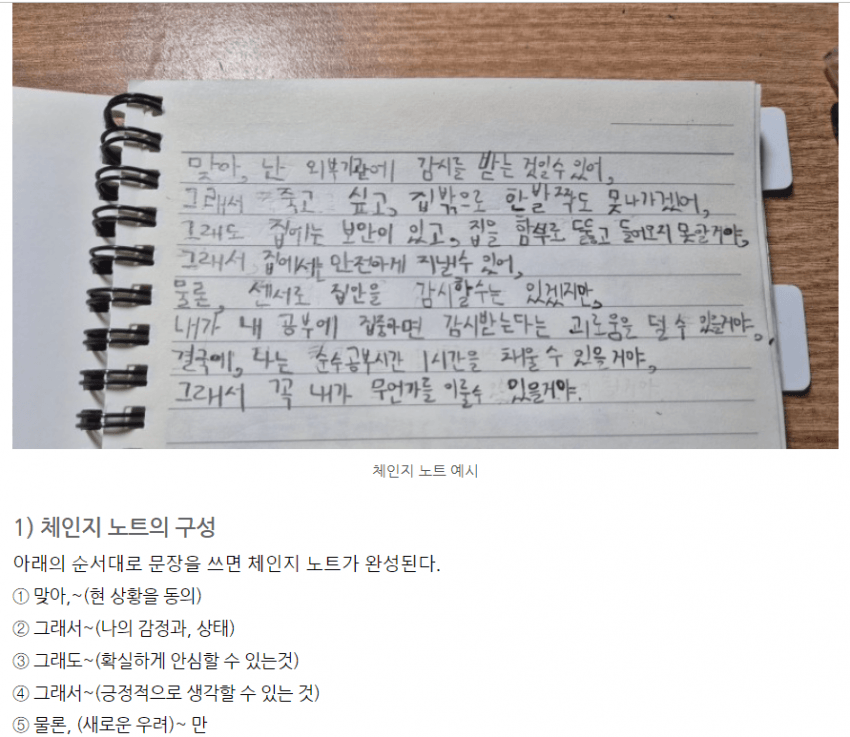 맞아, 난 외부기관에 감시를 받는 것일수 있어,
그래서 죽고 싶고, 집밖으로 한발짝도 못나가겠어,
그래도 집에는 보안이 있고, 집을 함부로 뚫고 들어오지 못할거야,
그래서 집에서는 안전하게 지낼수 있어,
물론, 센서로 집안을 감시할수는 있겠지만,
내가 내 공부에 집중하면 감시받는다는 괴로움은 덜 수 있을거야,
결국에, 나는 순수공부시간 1시간을 채울 수 있을 거야,
그래서 꼭 내가 무언가를 이룰수 있을거야.
체인지 노트 예시
1) 체인지 노트의 구성
아래의 순서대로 문장을 쓰면 체인지 노트가 완성된다.
① 맞아,~(현 상황을 동의)
② 그래서~(나의 감정과, 상태)
③ 그래도~(확실하게 안심할 수 있는것)
④ 그래서~(긍정적으로 생각할 수 있는 것)
⑤ 물론, (새로운 우려)~ 만